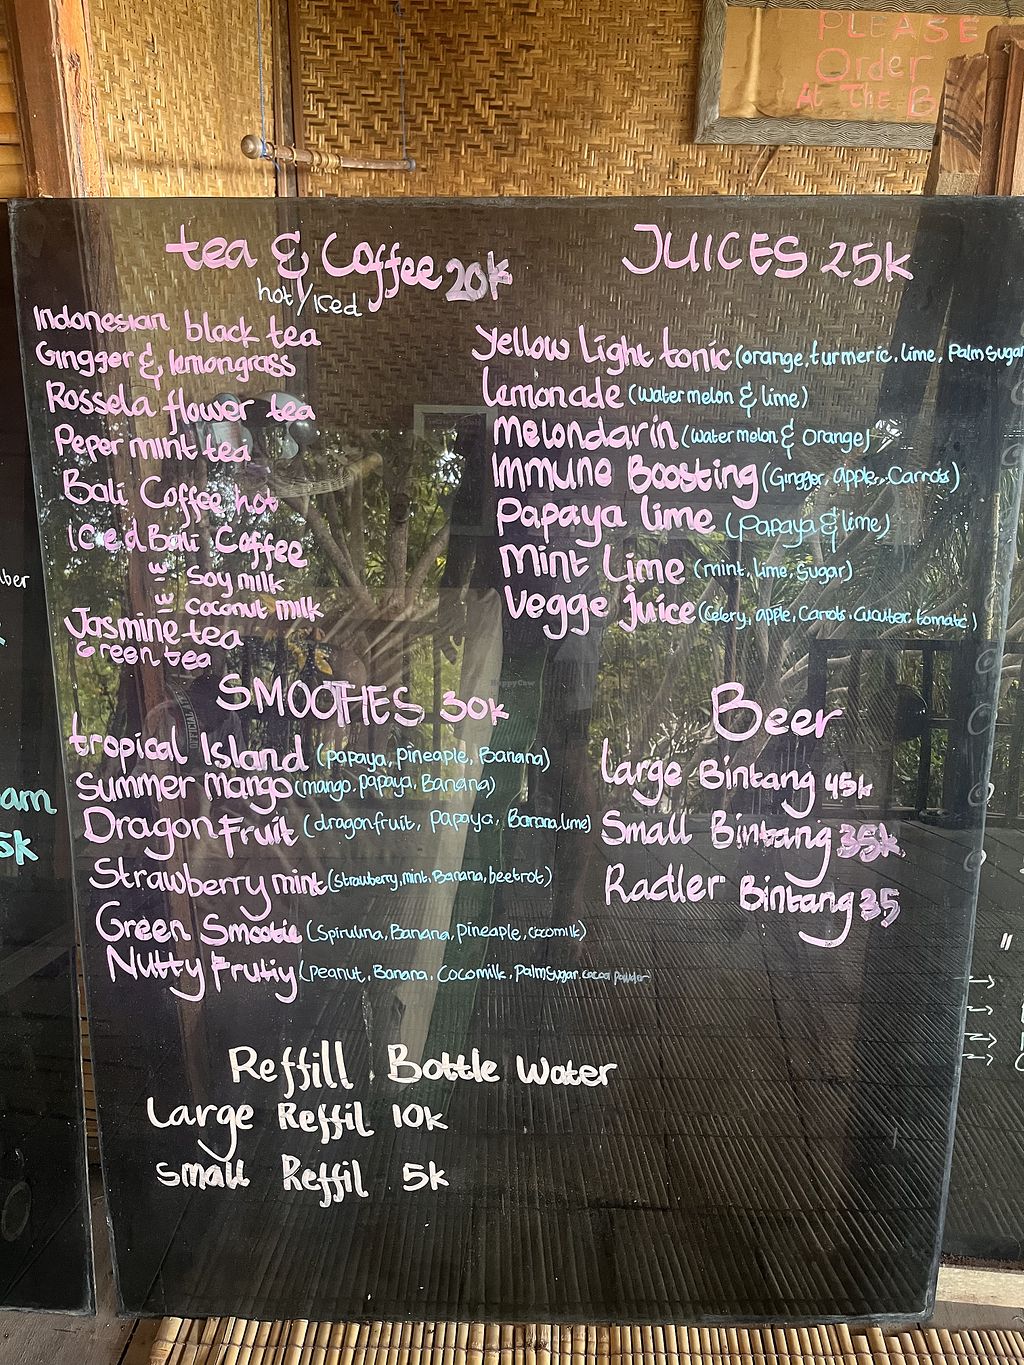 PLEASE
Order
At The B
tea & Coffee 20k
hot/Iced
Indonesian black tea
Gingger & lemongrass
Rossela flower tea
Peper mint tea
Bali Coffee hot
Iced Bali Coffee
w Soy milk
w coconut milk
Jasmine tea
Green tea
JUICES 25k
Yellow Light tonic (orange, turmeric, lime, Palm Sugar
Lemonade (water melon & lime)
Melondarin (water melon & Orange)
Immune Boosting (Gingger, apple, Carrots)
Papaya lime (Papaya & lime)
Mint Lime (mint, lime, Sugar)
Vegge juice (Celery, apple, Carrots, tomato)
SMOOTHIES 30k
tropical Island (papaya, pineaple, Banana)
Summer mango (mango, papaya, Banana)
Dragon Fruit (dragonfruit, Papaya, Banana, lime)
Strawberry mint (Strawberry, mint, Banana, beetrot)
Green Smootie (Spirulina, Banana, pineaple, cocomilk)
Nutty Frutiy (Peanut, Banana, Cocomilk, Palm Sugar, cacao powder
Beer
Large Bintang 45k
Small Bintang 35k
Radler Bintang 35
Reffill Bottle Water
Large Reffil 10k
Small Reffil 5k
am
5k
HappyCow